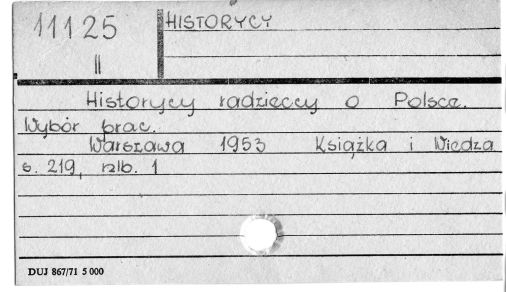 11125
II
HISTORYCY
Historycy radzieccy o Polsce.
Wybór prac.
Warszawa 1953 Książka i Wiedza
s. 219, nlb. 1
DUJ 867/71 5 000